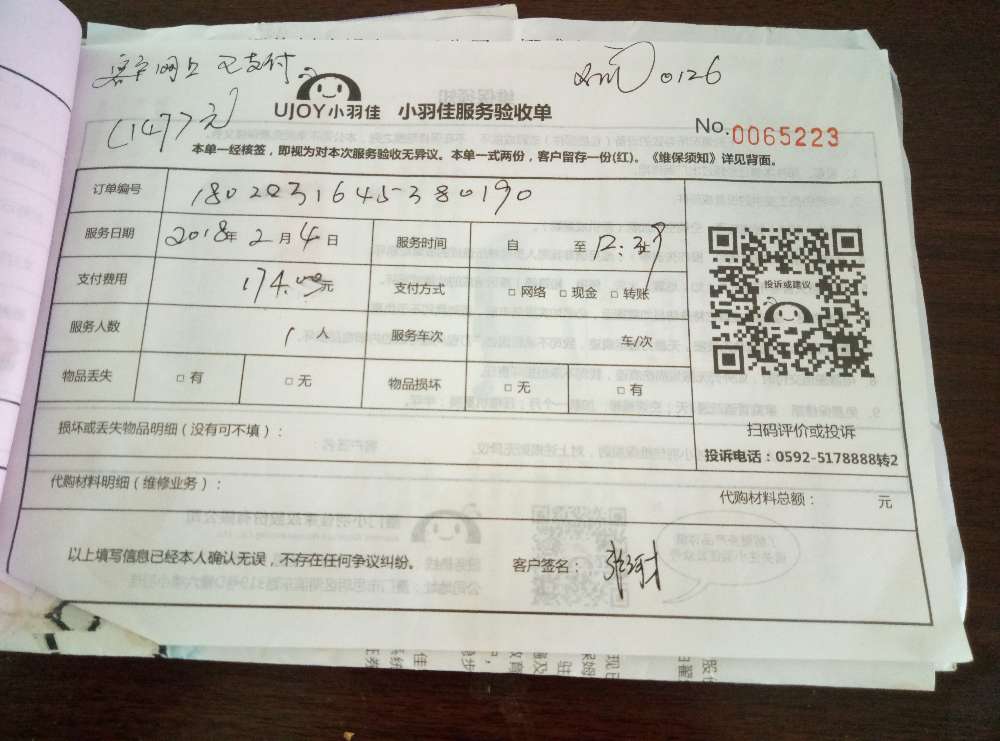 客户网上已支付
0126
(147元)
UJOY小羽佳 小羽佳服务验收单
No.0065223
本单一经核签，即视为对本次服务验收无异议。本单一式两份，客户留存一份(红)。《维保须知》详见背面。
订单编号 1802031645380190
服务日期 2018年2月4日 服务时间 自 至
支付费用 174.00元 支付方式 □ 网络 □ 现金 □ 转账
投诉或建议
服务人数 1人 服务车次 车/次
物品丢失 □ 有 □ 无 物品损坏 □ 无 □ 有
损坏或丢失物品明细（没有可不填）：
扫码评价或投诉
投诉电话：0592-5178888转2
代购材料明细（维修业务）： 代购材料总额： 元
以上填写信息已经本人确认无误，不存在任何争议纠纷。 客户签名：